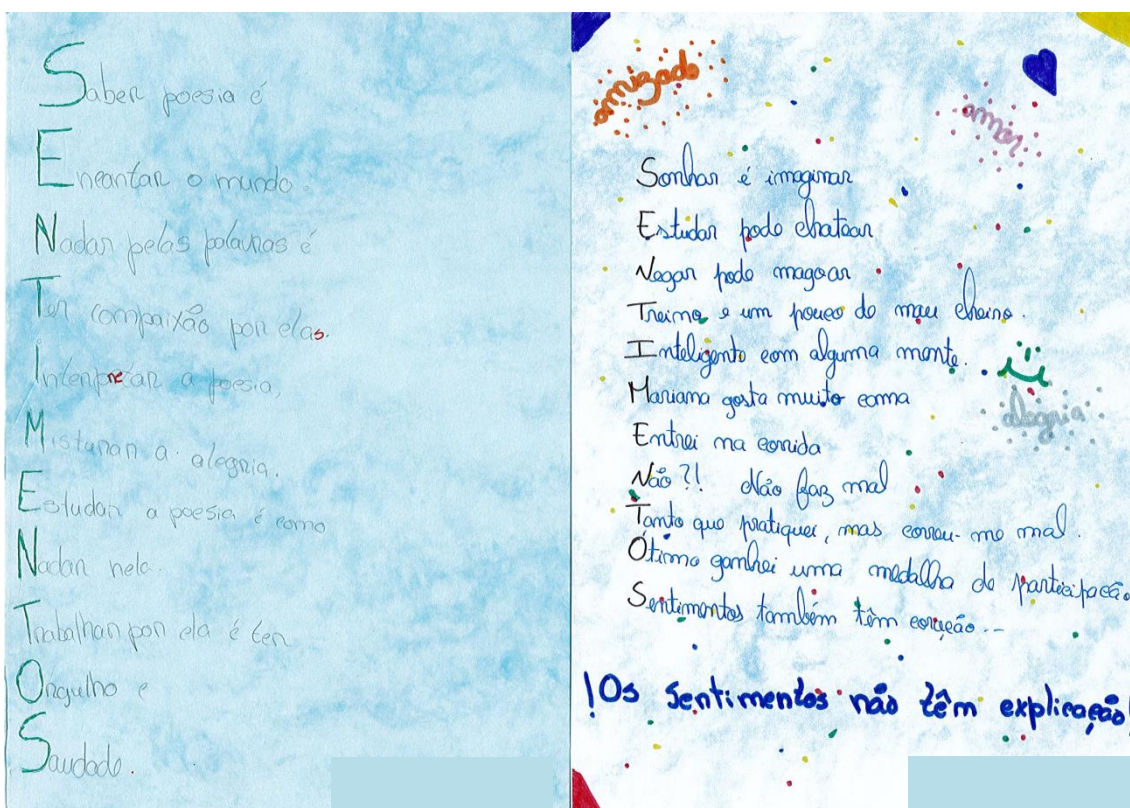 Saber poesia é
Encantar o mundo.
Nadar pelas palavras é
Ter compaixão por elas.
Interpretar a poesia,
Misturar a alegria.
Estudar a poesia é como
Nadar nela.
Trabalhar por ela é ter
Orgulho e
Saudade.
amizade
amor
Sonhar é imaginar
Estudar pode chatear
Negar pode magoar
Treino e um pouco de mau cheiro.
Inteligente com alguma mente.
alegria
Mariana gosta muito coma
Entrei na corrida
Não?! Não faz mal
Tanto que pratiquei, mas correu-me mal.
Ótimo ganhei uma medalha de participação
Sentimentos também têm coração...
!Os sentimentos não têm explicação!